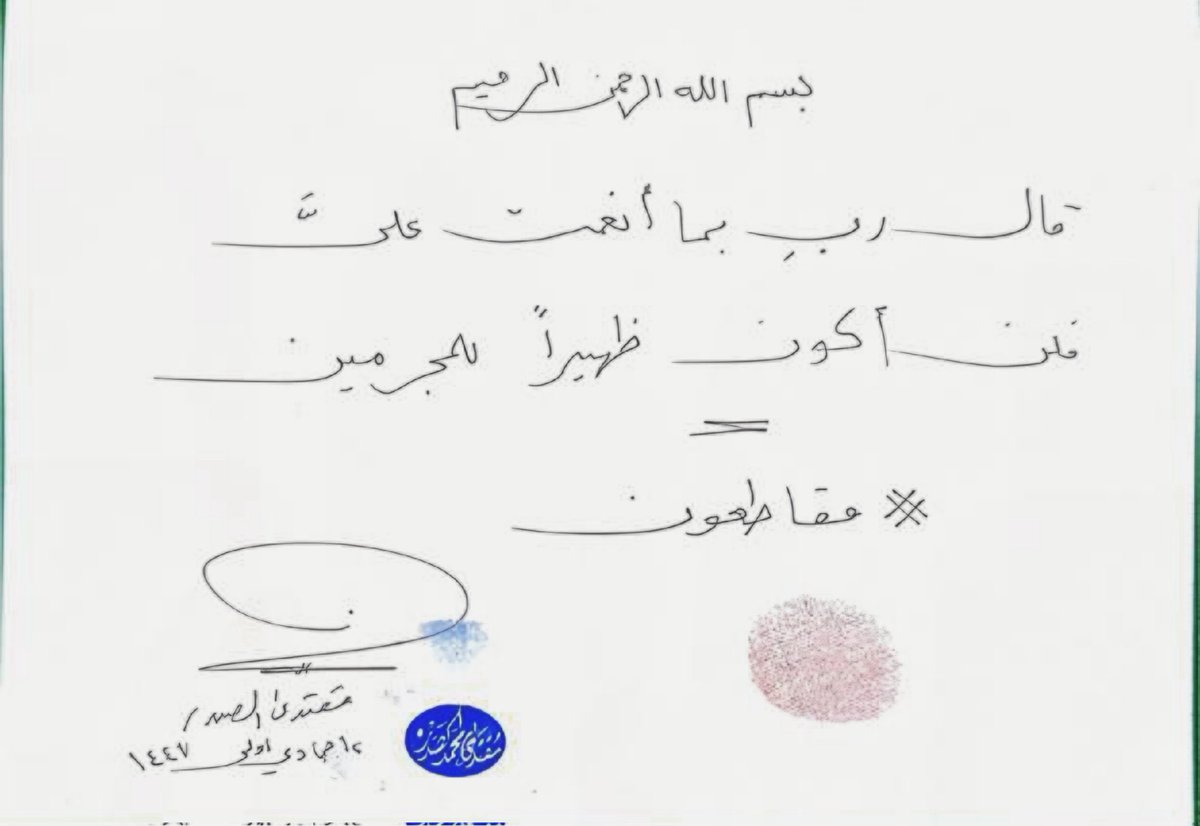 بسم الله الرحمن الرحيم
قال ربِ بما أنعمت علىَّ
فلن أكون ظهيراً للمجرمين
※ مقاطعون
مقتدى الصدر
جمادي اولى ١٤٤٧
مقتدى محمد